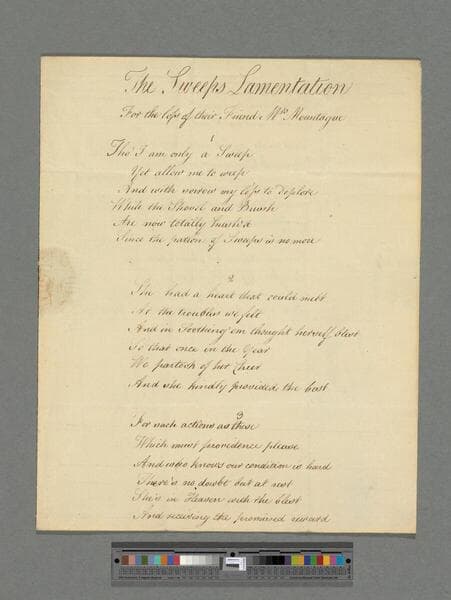 The Sweeps Lamentation
For the loss of their Friend Mrs Mountague
1
Tho' I am only a Sweep
Yet allow me to weep
And with sorrow my loss to deplore
While the Shovel and Brush
Are now totally hush'd
Since the patron of Sweeps is no more
2
She had a heart that could melt
At the troubles we felt
And in Soothing em thought herself blest
So that once in the Year
We partook of her Cheer
And she kindly provided the best
3
For such actions as these
Which must providence please
And who knows our condition is hard
There's no doubt but at rest
She's in Heaven with the blest
And receiving the promised reward